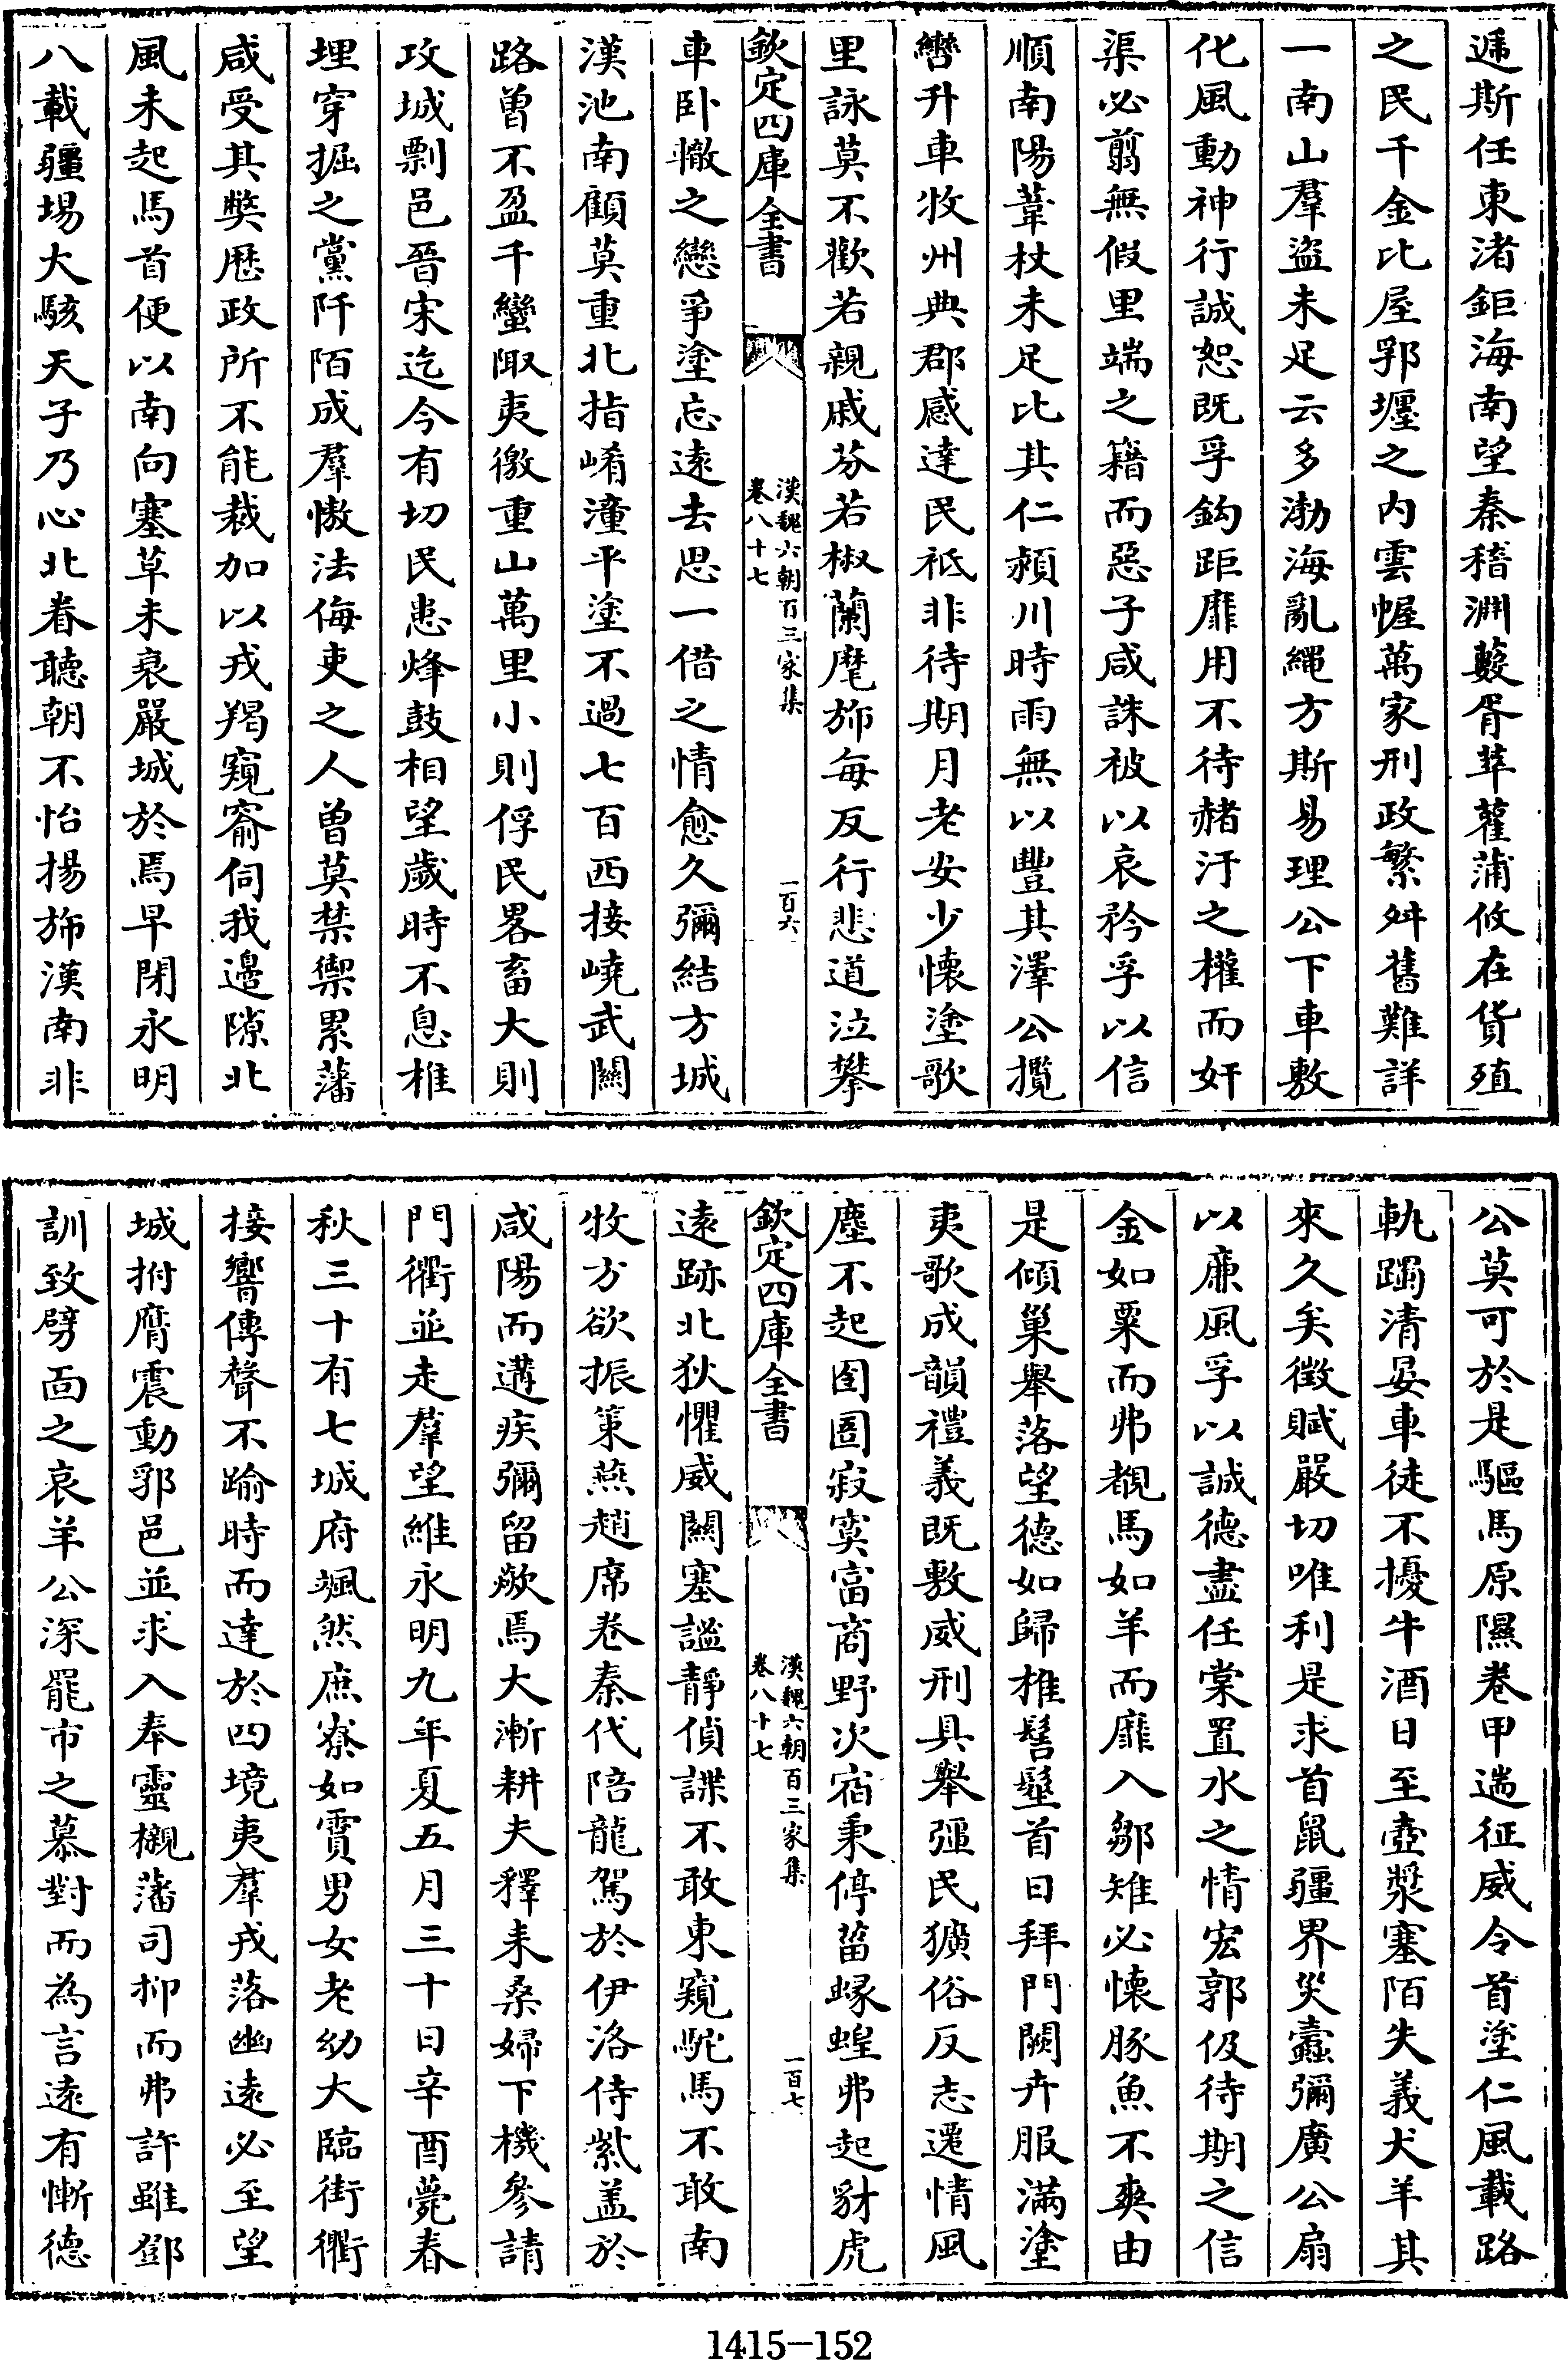 遞斯任東渚鉅海南望秦稽淵藪胥萃雚蒲攸在貨殖
之民千金比屋郛壥之内雲幄萬家刑政繁舛舊難詳
一南山羣盗未足云多渤海亂繩方斯易理公下車敷
化風動神行誠恕既孚鈎距靡用不待赭汙之權而奸
渠必翦無假里端之籍而惡子咸誅被以哀矜孚以信
順南陽葦杖未足比其仁潁川時雨無以豐其澤公攬
轡升車牧州典郡感達民祇非待期月老安少懷塗歌
里詠莫不歡若親戚芬若椒蘭麾斾每反行悲道泣攀
欽定四庫全書
漢魏六朝百三家集
卷八十七
一百六
車卧轍之戀爭塗忘逺去思一借之情愈久彌結方城
漢池南顧莫重北指崤潼平塗不過七百西接嶢武關
路曽不盈千蠻陬夷徼重山萬里小則俘民畧畜大則
攻城剽邑晉宋迄今有切民患烽鼓相望歲時不息椎
埋穿掘之黨阡陌成羣傲法侮吏之人曽莫禁禦累藩
咸受其弊歴政所不能裁加以戎羯窺窬伺我邊隙北
風未起馬首便以南向塞草未衰嚴城於焉早閉永明
八載疆埸大駭天子乃心北眷聽朝不怡揚斾漢南非
公莫可於是驅馬原隰卷甲遄征威令首塗仁風載路
軌躅清晏車徒不擾牛酒日至壺漿塞陌失義犬羊其
來久矣徵賦嚴切唯利是求首鼠疆界災蠧彌廣公扇
以亷風孚以誠德盡任棠置水之情宏郭伋待期之信
金如粟而弗覩馬如羊而靡入鄒雉必懷豚魚不爽由
是傾巢舉落望德如歸椎髻髽首日拜門闕卉服滿塗
夷歌成韻禮義既敷威刑具舉彊民獷俗反志遷情風
塵不起囹圄寂寞富商野次宿秉停菑蝝蝗弗起豺虎
欽定四庫全書
漢魏六朝百三家集
卷八十七
一百七
逺跡北狄懼威關塞謐靜偵諜不敢東窺駝馬不敢南
牧方欲振策燕趙席卷秦代陪龍駕於伊洛侍紫盖於
咸陽而遘疾彌留歘焉大漸耕夫釋耒桑婦下機參請
門衢並走羣望維永明九年夏五月三十日辛酉薨春
秋三十有七城府颯然庶寮如霣男女老幼大臨街衢
接響傳聲不踰時而達於四境夷羣戎落幽逺必至望
城拊膺震動郛邑並求入奉靈櫬藩司抑而弗許雖鄧
訓致劈面之哀羊公深罷市之慕對而為言逺有慚德
1415-152